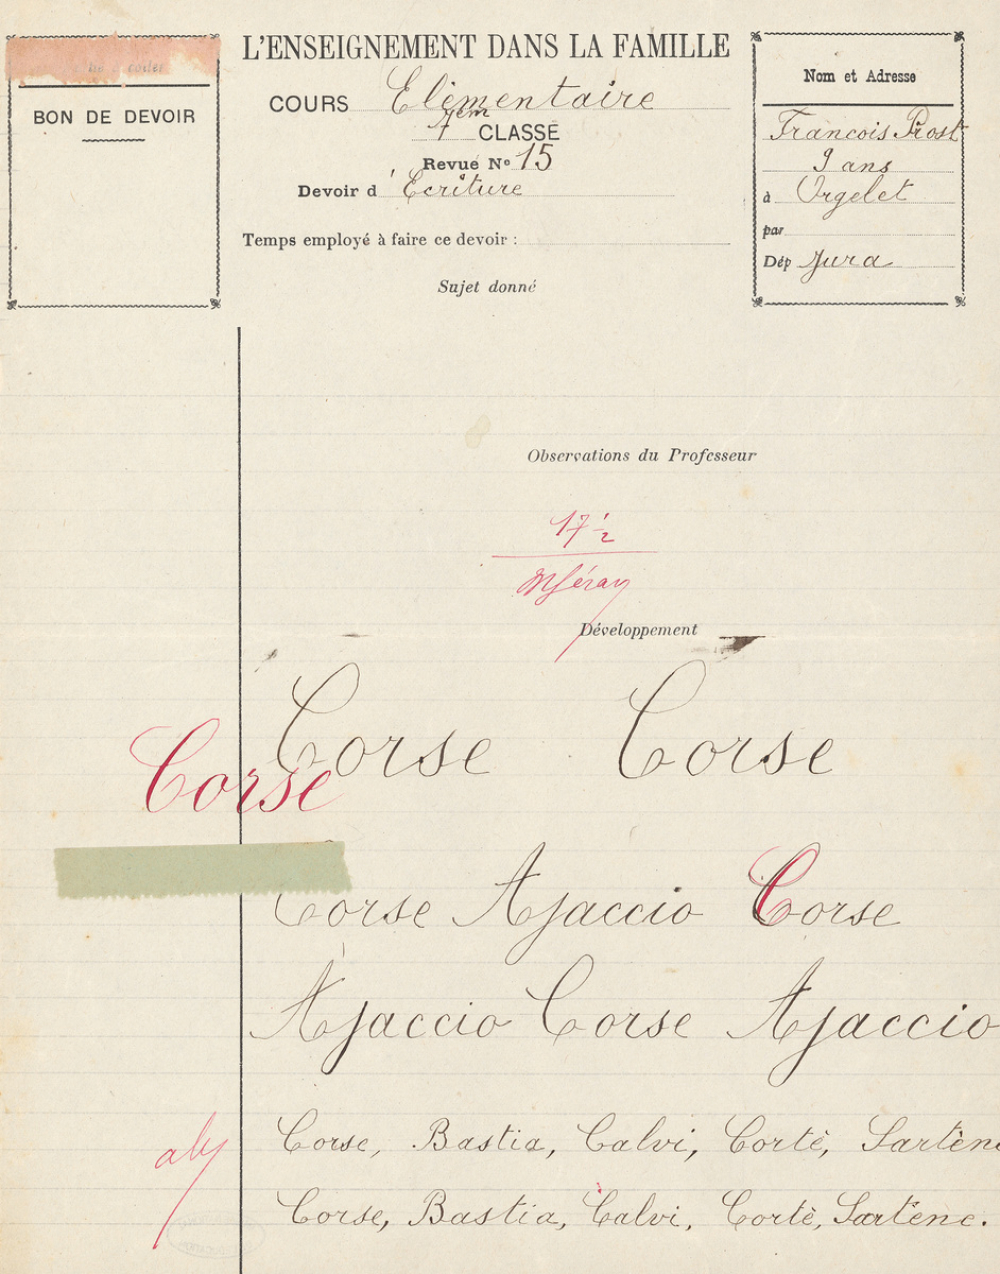 BON DE DEVOIR
L'ENSEIGNEMENT DANS LA FAMILLE
COURS Elémentaire
7em CLASSE
Revue No 15
Devoir d'Ecriture
Temps employé à faire ce devoir :
Sujet donné
Nom et Adresse
Francois Prost
9 ans
à Orgelet
par
Dép Jura
Observations du Professeur
17 ½
Développement
Corse Corse
Corse
Corse Ajaccio Corse
Ajaccio Corse Ajaccio
Corse, Bastia, Calvi, Corté, Sartène
Corse, Bastia, Calvi, Corté, Sartène.